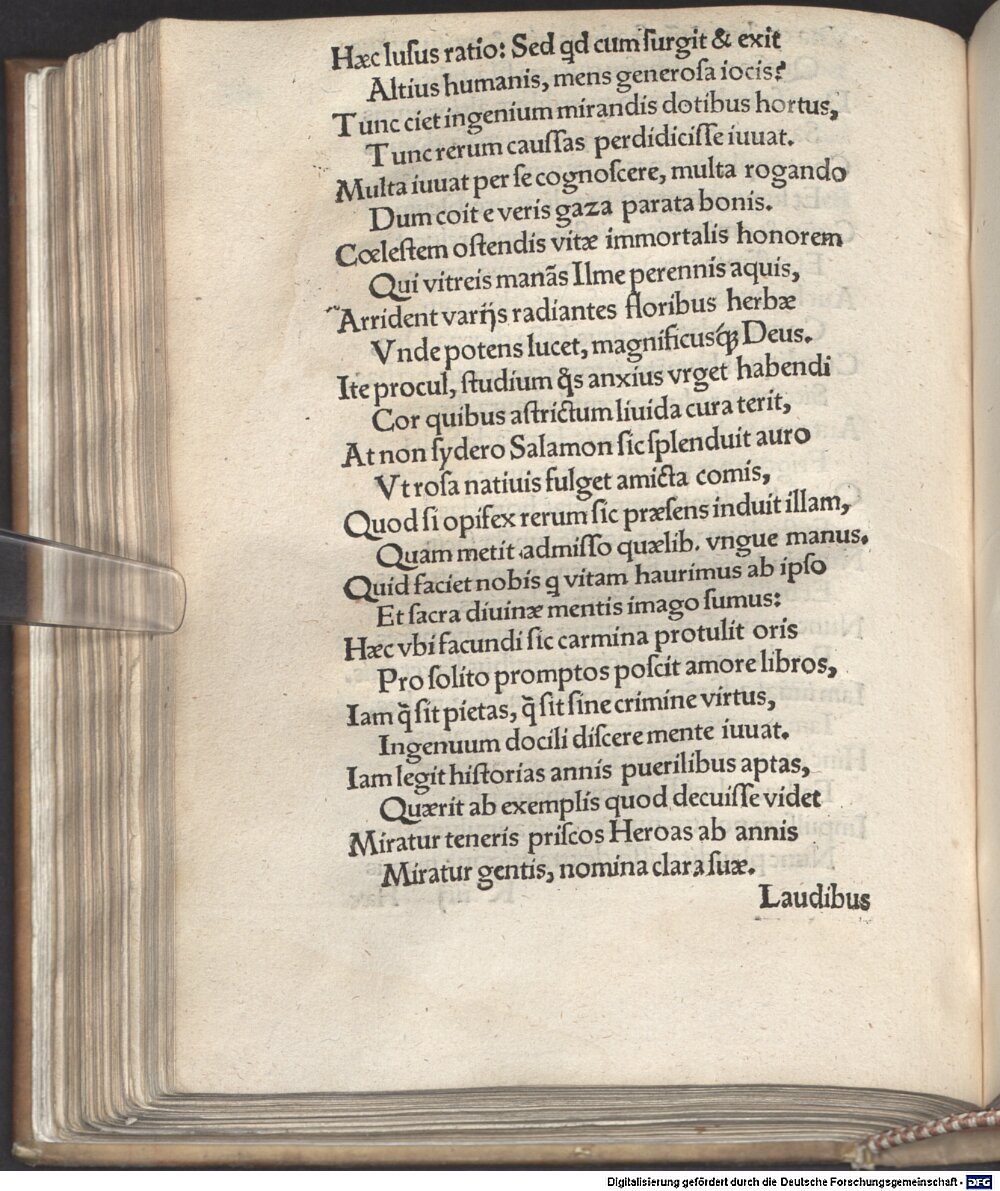 Hæc luſus ratio: Sed qd cum ſurgit & exit
Altius humanis, mens generoſa iocis?
Tunc ciet ingenium mirandis dotibus hortus,
Tunc rerum cauſſas perdidiciſſe iuuat.
Multa iuuat per ſe cognoſcere, multa rogando
Dum coit e veris gaza parata bonis.
Cœleſtem oſtendis vitæ immortalis honorem
Qui vitreis manãs Ilme perennis aquis,
Arrident varijs radiantes floribus herbæ
Vnde potens lucet, magnificusq́ꝫ Deus.
Ite procul, ſtudium q̃s anxius vrget habendi
Cor quibus aſtrictum liuida cura terit,
At non ſydero Salamon ſic ſplenduit auro
Vt roſa natiuis fulget amicta comis,
Quod ſi opifex rerum ſic præſens induit illam,
Quam metit admiſſo quælib. vngue manus.
Quid faciet nobis q vitam haurimus ab ipſo
Et ſacra diuinæ mentis imago ſumus:
Hæc vbi facundi ſic carmina protulit oris
Pro ſolito promptos poſcit amore libros,
Iam q̃ ſit pietas, q̃ ſit ſine crimine virtus,
Ingenuum docili diſcere mente iuuat.
Iam legit hiſtorias annis puerilibus aptas,
Quærit ab exemplis quod decuiſſe videt
Miratur teneris priſcos Heroas ab annis
Miratur gentis, nomina clara ſuæ.
Laudibus
Digitalisierung gefördert durch die Deutsche Forschungsgemeinschaft - DFG